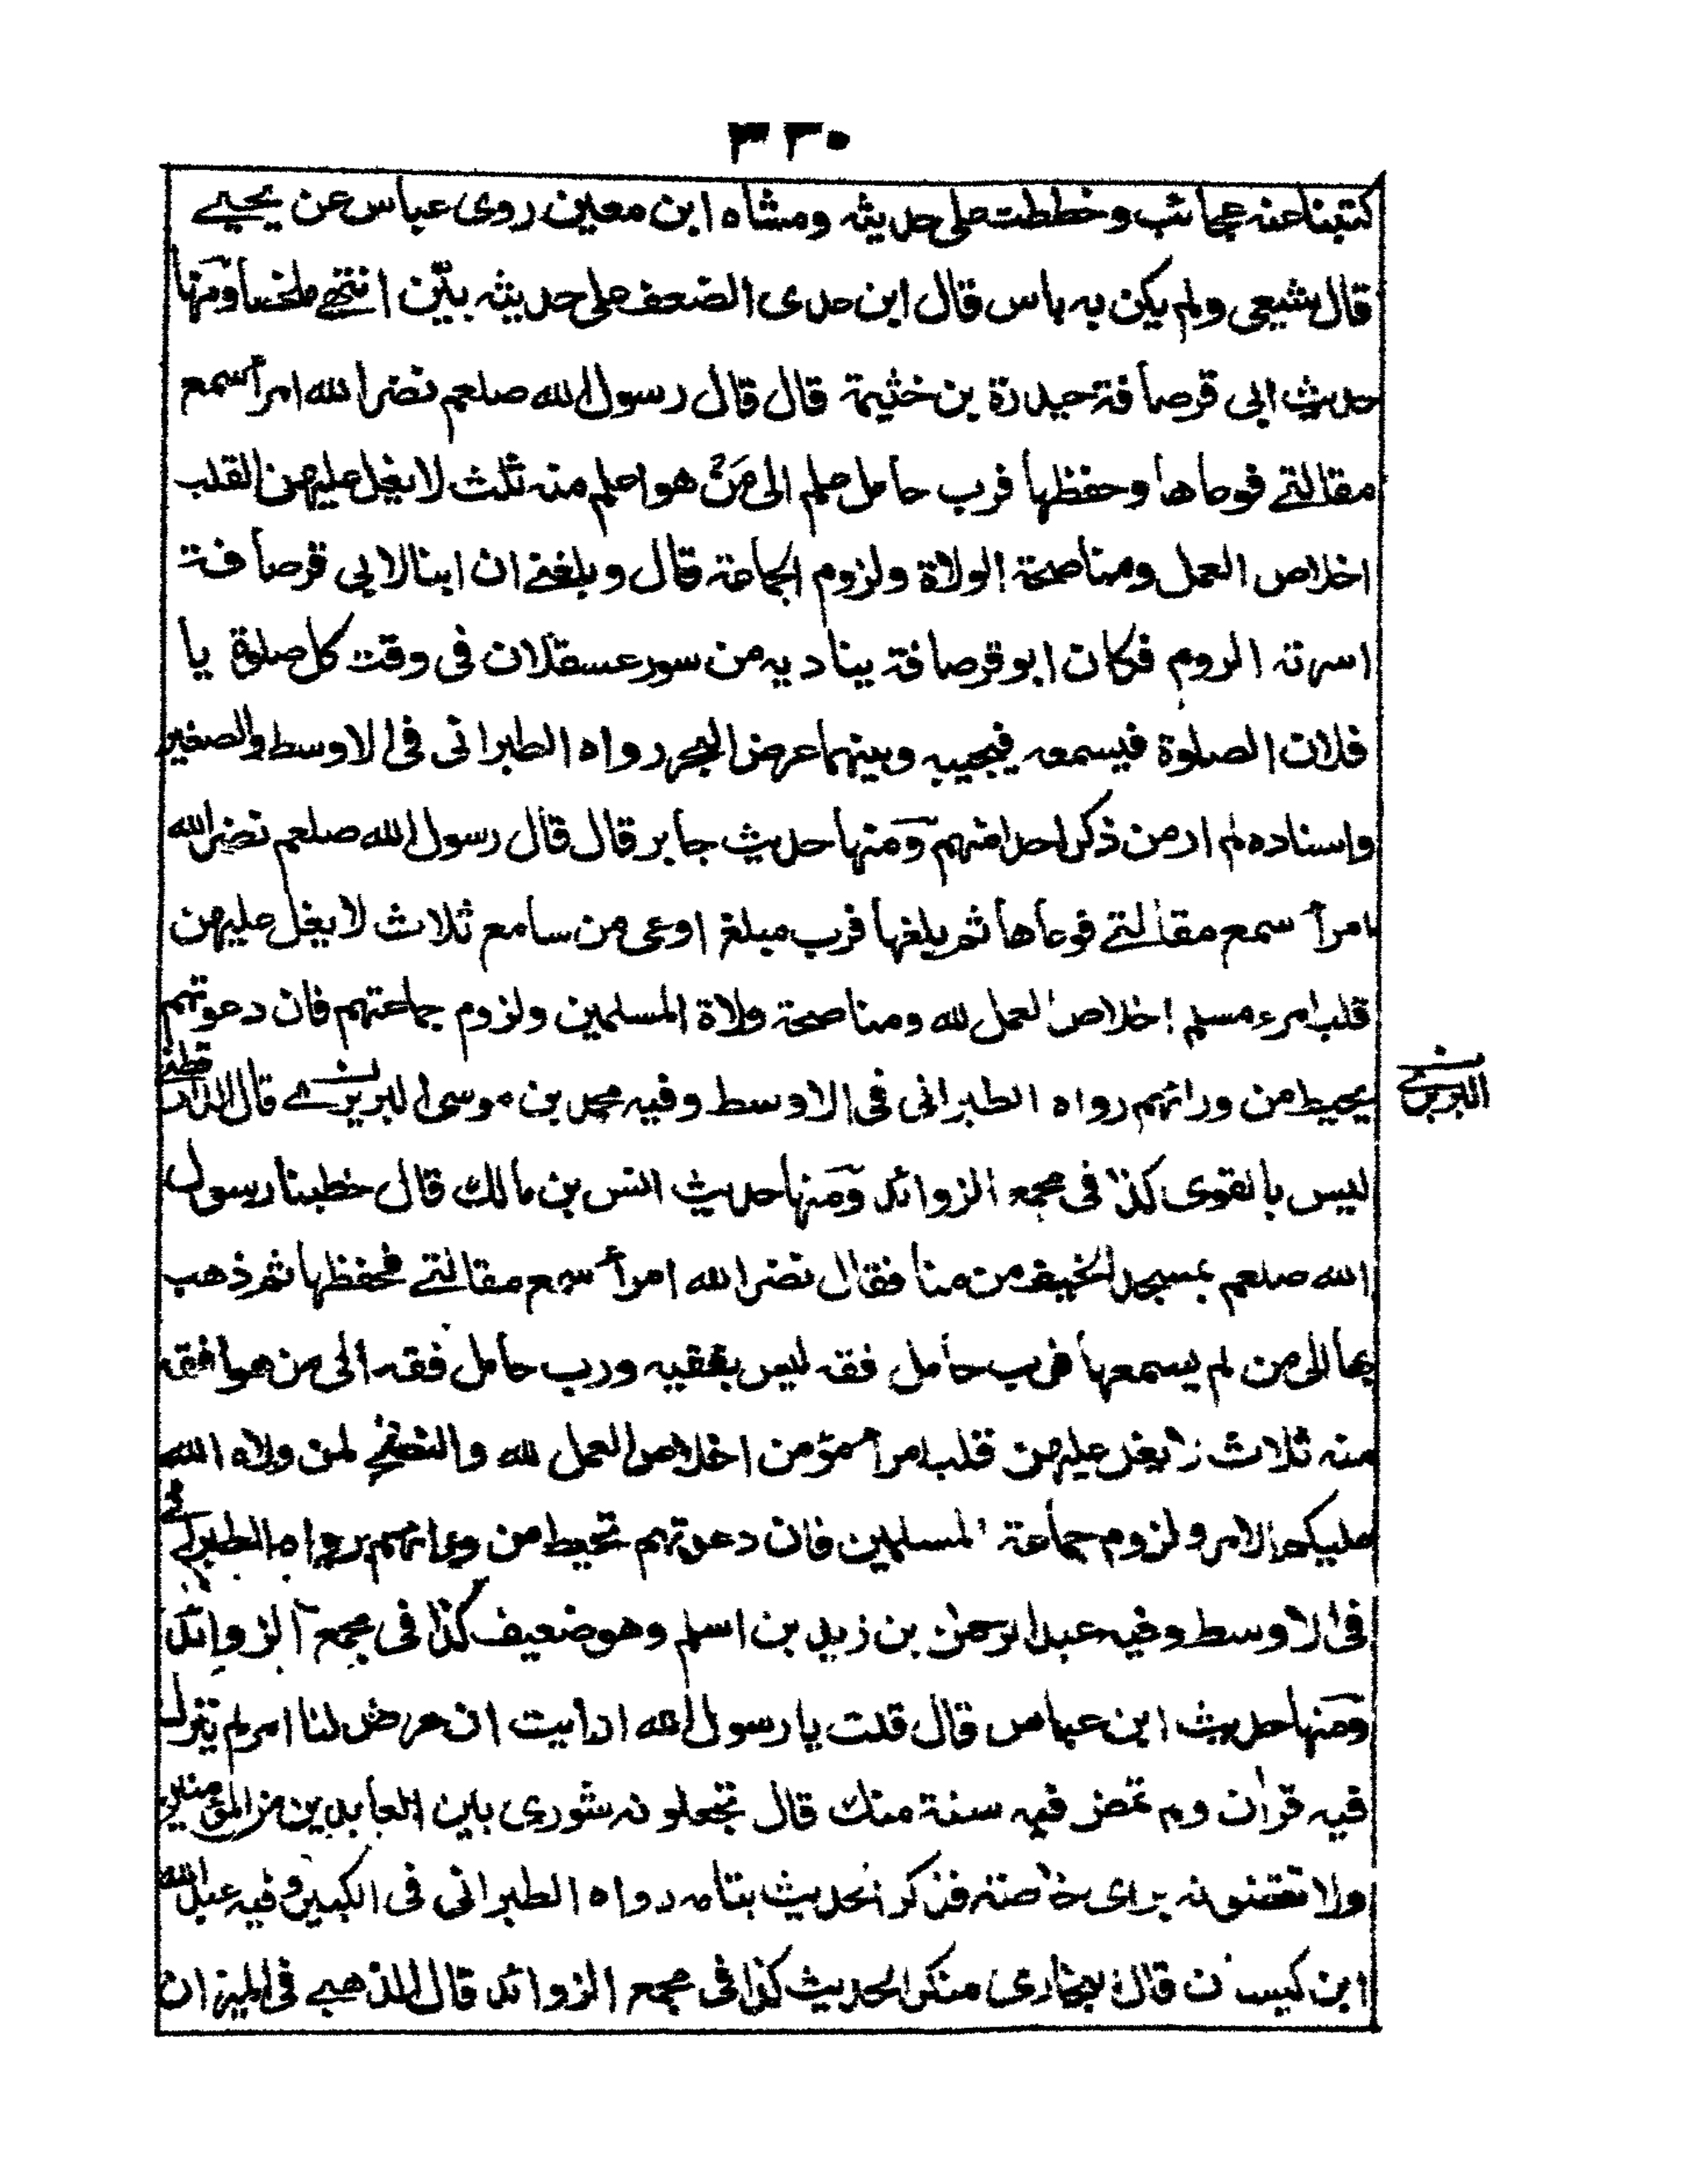 ٣٣٠
كتبنا عنه عجائب وخططت على حديثه ومشاه ابن معين روى عباس عن يحيى
قال شيعى ولم يكن به باس قال ابن عدى الضعف على حديثه بيّن انتهى ملخصا ومنها
حديث ابى قرصافة حيدرة بن خثيمة قال قال رسول الله صلعم نضر الله امرأ سمع
مقالتى فوعاها وحفظها فرب حامل علم الى مَنْ هو اعلم منه ثلث لا يغل عليهن القلب
اخلاص العمل ومناصحة الولاة ولزوم الجماعة قال وبلغنى ان ابنا لابى قرصافة
اسرته الروم فكان ابو قرصافة يناديه من سور عسقلان فى وقت كل صلوة يا
فلان الصلوة فيسمعه فيجيبه وبينهما عرض البحر رواه الطبرانى فى الاوسط والصغير
واسناده لم ار من ذكر احدا منهم ومنها حديث جابر قال قال رسول الله صلعم نضر الله
امرأ سمع مقالتى فوعاها ثم بلغها فرب مبلغ اوعى من سامع ثلاث لا يغل عليهن
قلب امرء مسلم اخلاص العمل لله ومناصحة ولاة المسلمين ولزوم جماعتهم فان دعوتهم
يحيط من ورائهم رواه الطبرانى فى الاوسط وفيه محمد بن موسى البربرى قال الدارقطنى
البربرى
ليس بالقوى كذا فى مجمع الزوائد ومنها حديث انس بن مالك قال خطبنا رسول
الله صلعم بمسجد الخيف من منا فقال نضر الله امرأ سمع مقالتى فحفظها ثم ذهب
بها الى من لم يسمعها فرب حامل فقه ليس بفقيه ورب حامل فقه الى من هو افقه
منه ثلاث لا يغل عليهن قلب امرأ مؤمن اخلاص العمل لله والنصح لمن ولاه الله
عليكم الامر ولزوم جماعة المسلمين فان دعوتهم تحيط من ورائهم رواه الطبرانى
فى الاوسط وفيه عبد الرحمن بن زيد بن اسلم وهو ضعيف كذا فى مجمع الزوائد
ومنها حديث ابن عباس قال قلت يا رسول الله ارايت ان عرض لنا امر لم ينزل
فيه قرأن ولم تمض فيه سنة منك قال تجعلونه شورى بين العابدين من المؤمنين
ولا تقضونه براى خاصة فذكر الحديث بتمامه رواه الطبرانى فى الكبير وفيه عبد الله
ابن كيسان قال البخارى منكر الحديث كذا فى مجمع الزوائد قال الذهبى فى الميزان